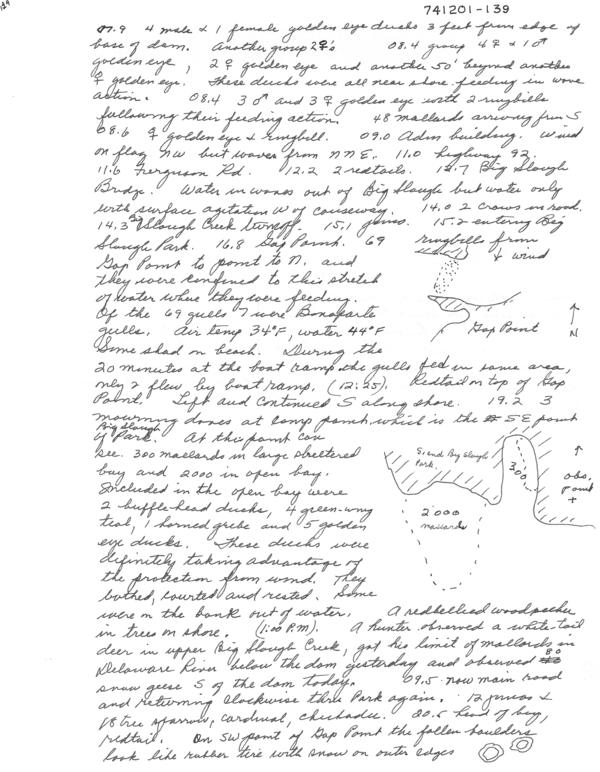 741201-139
07.9 4 male & 1 female golden eye ducks 3 feet from edge of
base of dam. Another group 2♀'s 08.4 group 4♀ & 1♂
golden eye, 2♀ golden eye and another 50' beyond another
♀ golden eye. These ducks were all near shore feeding in wave
action. 08.4 3♂ and 3♀ golden eye with 2 ringbills
following their feeding action. 48 mallards arriving from S
08.6 ♀ golden eye & ringbill. 09.0 Adm building. Wind
on flag NW but waves from NNE. 11.0 highway 92.
11.6 Ferguson Rd. 12.2 2 redtails. 12.7 Big Slough
Bridge. Water in woods out of Big Slough but water only
with surface agitation W of causeway. 14.0 2 crows in road.
14.3 Slough Creek turnoff. 15.1 juncos. 15.2 entering Big
Slough Park. 16.8 Gap Point. 69 ringbills from
Gap Point to point to N. and
they were confined to this stretch
of water where they were feeding.
Of the 69 gulls 7 were Bonaparte
gulls. Air temp 34°F, water 44°F
Some shad on beach. During the
20 minutes at the boat ramp the gulls fed in same area,
only 2 flew by boat ramp. (12:25). Redtail on top of Gap
Point. Left and continued S along shore. 19.2 3
mourning doves at camp point which is the SE point
Big Slough
of Park. At this point can
see 300 mallards in large sheltered
bay and 2000 in open bay.
Included in the open bay were
2 buffle-head ducks, 4 green-wing
teal, 1 horned grebe and 5 golden
eye ducks. These ducks were
difinitely taking advantage of
the protection from wind. They
bathed, courted and rested. Some
were on the bank out of water. A redbellied woodpecker
in trees on shore. (1:00 P.M). A hunter observed a white-tail
deer in upper Big Slough Creek, got his limit of mallards in
Delaware River below the dam yesterday and observed 80
snow geese S of the dam today. 09.5 now main road
and returning clockwise thru Park again. 12 juncos &
18 tree sparrows, cardinal, chickadee. 20.5 head of bay,
redtail. On SW point of Gap Point the fallen boulders
look like rubber tire with snow on outer edges
↓ wind
Gap Point
↑
N
S. end Big Slough
Park.
300
↑
obs.
point
+
2000
mallards